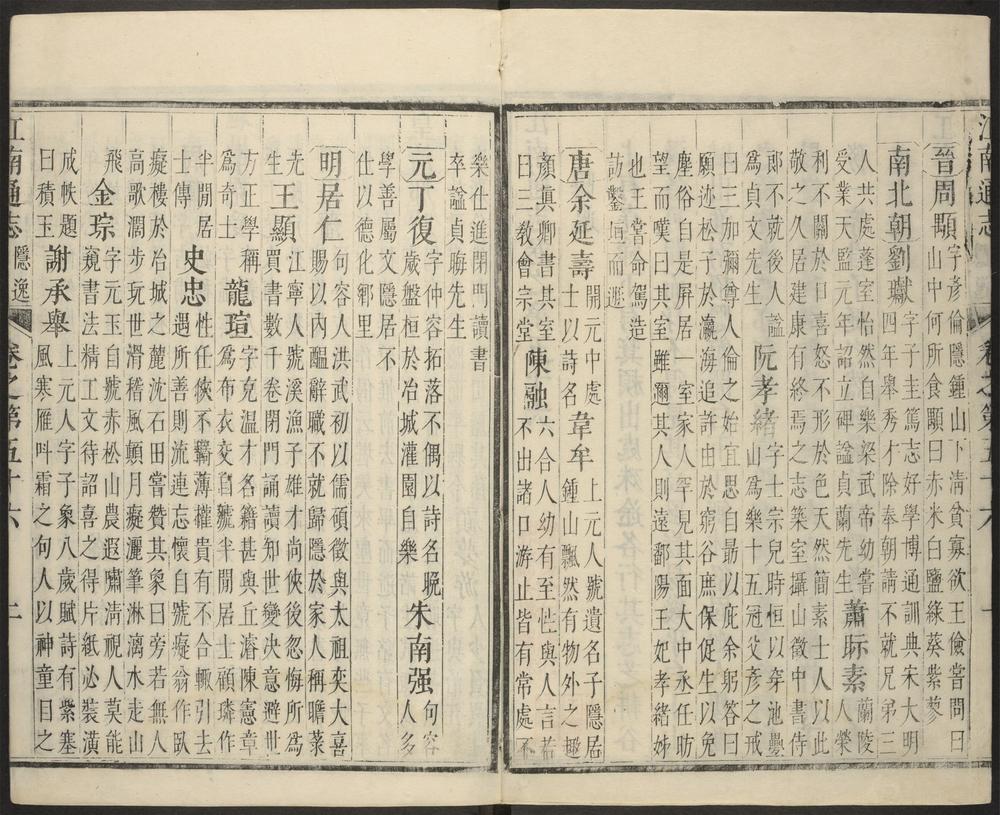 江南通志 卷之第五十六 一
晉周顒字彥倫隱鍾山下清貧寡欲王儉嘗問曰
山中何所食顒曰赤米白鹽綠葵紫蓼
南北朝劉瓛字子圭篤志好學博通訓典宋大明
四年舉秀才除奉朝請不就兄弟三
人共處蓬室怡然自樂梁武帝幼嘗
受業天監元年詔立碑謚貞蘭先生
蕭际素蘭陵
人榮
利不關於口喜怒不形於色天然簡素士人以此
敬之久居建康有終焉之志築室攝山徵中書侍
郎不就後人謚
為貞文先生
阮孝緒字士宗兒時桓以穿池疊
山為樂十五冠父彥之戒
曰三加彌尊人倫之始宜思自勗以庇余躬答曰
願迹松子於瀛海追許由於窮谷庶保促生以免
塵俗自是屏居一室家人罕見其面大中丞任昉
望而嘆曰其室雖邇其人則遠鄱陽王妃孝緒姊
也王嘗命駕造
訪鑿垣而遯
唐余延壽開元中處
士以詩名
韋牟上元人號遺名子隱居
鍾山飄然有物外之趣
顏真卿書其室
曰三教會宗堂
陳融六合人幼有至性與人言若
不出諸口游止皆有常處不
樂仕進閉門讀書
卒謚貞晦先生
元丁復字仲容拓落不偶以詩名晚
歲盤桓於冶城灌園自樂
朱南强句容
人多
學善屬文隱居不
仕以德化鄉里
明居仁句容人洪武初以儒碩徵與太祖奕大喜
賜以內醞辭職不就歸隱於家人稱瞻菉
先
生
王顯江寧人號溪漁子雄才尚俠後忽悔所為
買書數千卷閉門誦讀知世變决意避世
方正學稱
為奇士
龍瑄字克温才名籍甚與丘濬陳憲章
為布衣交自號半閒居士顧璘作
半閒居
士傳
史忠性任俠不羈薄權貴有不合輒引去
遇所善則流連忘懷自號癡翁作臥
癡樓於冶城之麓沈石田嘗贊其象曰旁若無人
高歌濶步玩世滑稽風顛月癡灑筆淋漓水走山
飛
金琮字元玉自號赤松山農遐嘯清視人莫能
窺書法精工文待詔喜之得片紙必裝潢
成帙題
曰積玉
謝承舉上元人字子象八歲賦詩有紫塞
風寒雁呌霜之句人以神童目之
江南通志 隱逸 卷之第五十六 二